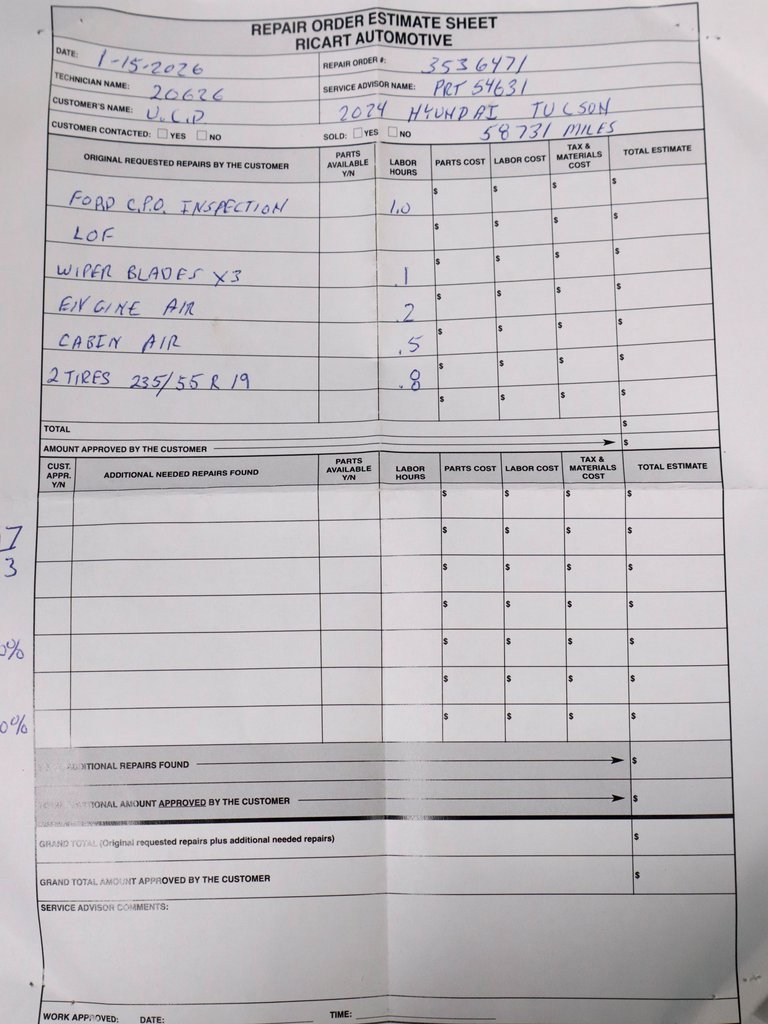 REPAIR ORDER ESTIMATE SHEET
RICART AUTOMOTIVE
DATE: 1-15-2026 REPAIR ORDER #: 3536471
TECHNICIAN NAME: 20626 SERVICE ADVISOR NAME: PRT 54631
CUSTOMER'S NAME: U.C.D 2024 HYUNDAI TUCSON
CUSTOMER CONTACTED: YES NO SOLD: YES NO 58731 MILES
ORIGINAL REQUESTED REPAIRS BY THE CUSTOMER PARTS AVAILABLE Y/N LABOR HOURS PARTS COST LABOR COST TAX & MATERIALS COST TOTAL ESTIMATE
FORD C.P.O. INSPECTION 1.0 $ $ $ $
LOF $ $ $ $
WIPER BLADES X3 .1 $ $ $ $
ENGINE AIR .2 $ $ $ $
CABIN AIR .5 $ $ $ $
2 TIRES 235/55 R 19 .8 $ $ $ $
$ $ $ $
TOTAL $
AMOUNT APPROVED BY THE CUSTOMER $
CUST. APPR. Y/N ADDITIONAL NEEDED REPAIRS FOUND PARTS AVAILABLE Y/N LABOR HOURS PARTS COST LABOR COST TAX & MATERIALS COST TOTAL ESTIMATE
$ $ $ $
7 $ $ $ $
3 $ $ $ $
$ $ $ $
0% $ $ $ $
$ $ $ $
0% $ $ $ $
ADDITIONAL REPAIRS FOUND $
ADDITIONAL AMOUNT APPROVED BY THE CUSTOMER $
GRAND TOTAL (Original requested repairs plus additional needed repairs) $
GRAND TOTAL AMOUNT APPROVED BY THE CUSTOMER $
SERVICE ADVISOR COMMENTS:
WORK APPROVED: DATE: TIME: